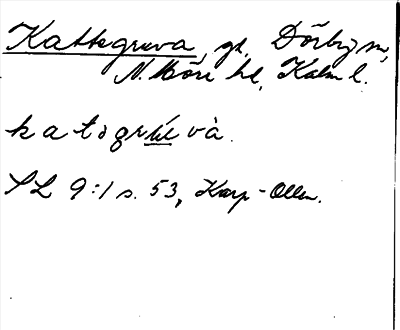 Kattegruva, gl. Dörby sn,
N. Möre hd, Kalm l.
katogrúvà.
SL 9:1 s. 53, Karp-Ollén.